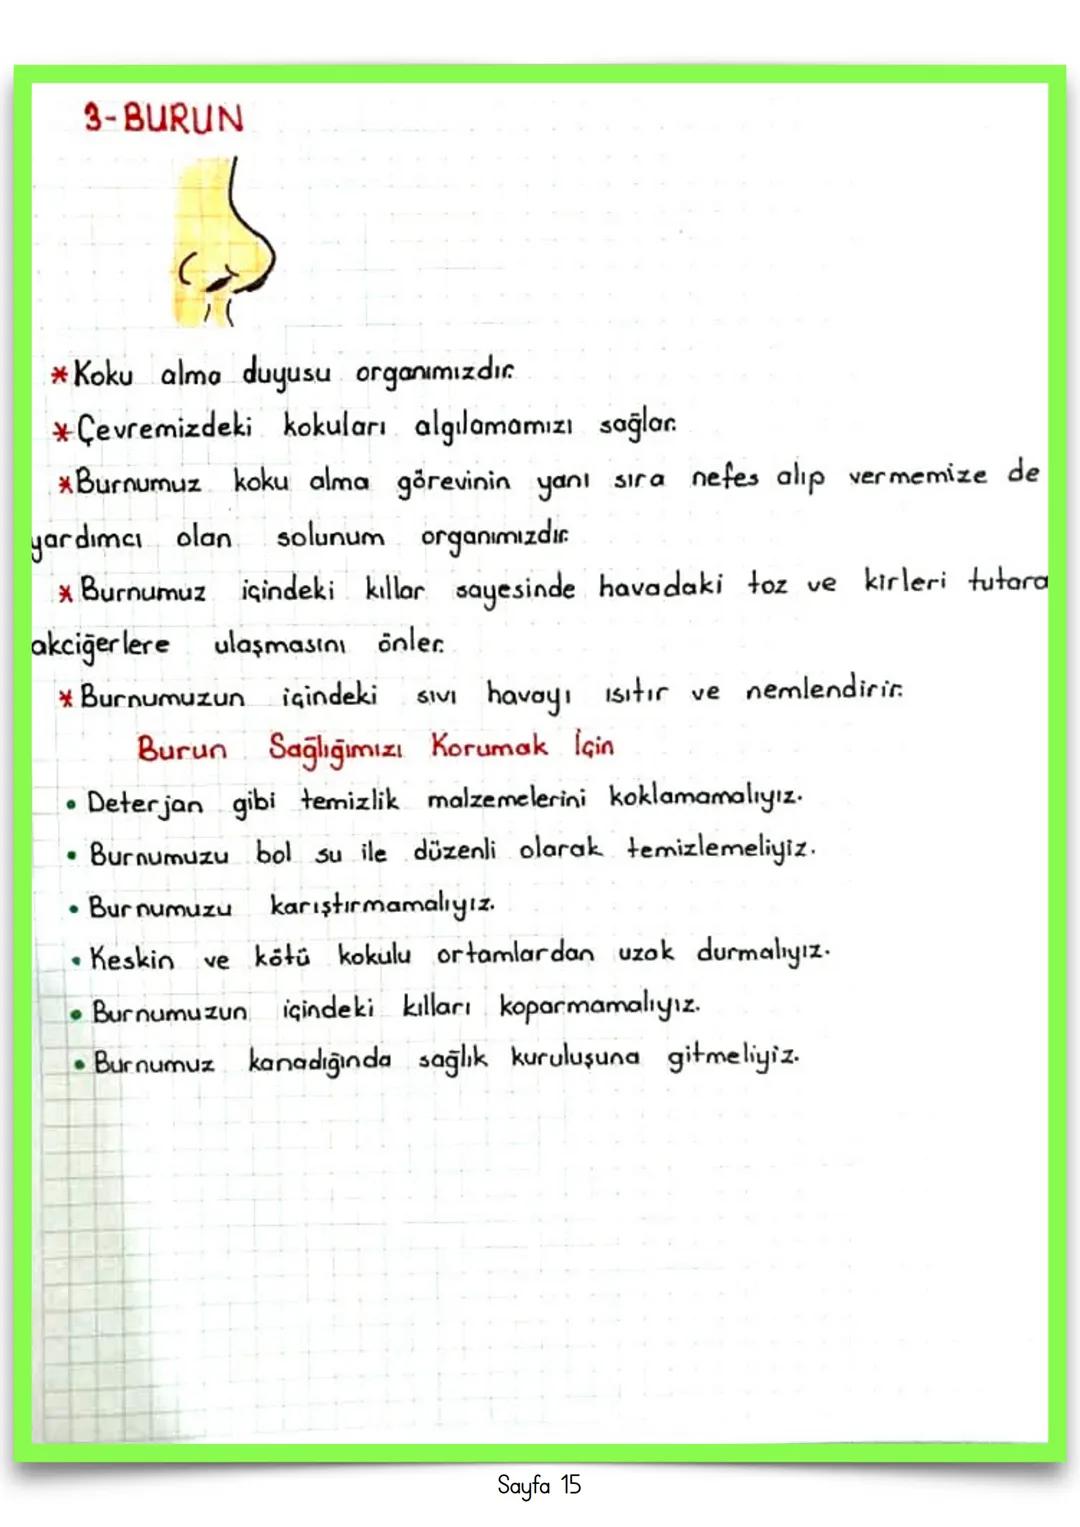 3-BURUN
*Koku alma duyusu organımızdır.
*Çevremizdeki kokuları algılamamızı sağlar.
*Burnumuz koku alma görevinin yanı sıra nefes alıp vermemize de
yardımcı olan solunum organımızdır.
*Burnumuz içindeki kıllar sayesinde havadaki toz ve kirleri tutara
akciğerlere ulaşmasını önler.
*Burnumuzun içindeki sıvı havayı ısıtır ve nemlendirir.
Burun Sağlığımızı Korumak İçin
• Deterjan gibi temizlik malzemelerini koklamamalıyız.
• Burnumuzu bol su ile düzenli olarak temizlemeliyiz.
• Burnumuzu karıştırmamalıyız.
• Keskin ve kötü kokulu ortamlardan uzak durmalıyız.
• Burnumuzun içindeki kılları koparmamalıyız.
• Burnumuz kanadığında sağlık kuruluşuna gitmeliyiz.
Sayfa 15